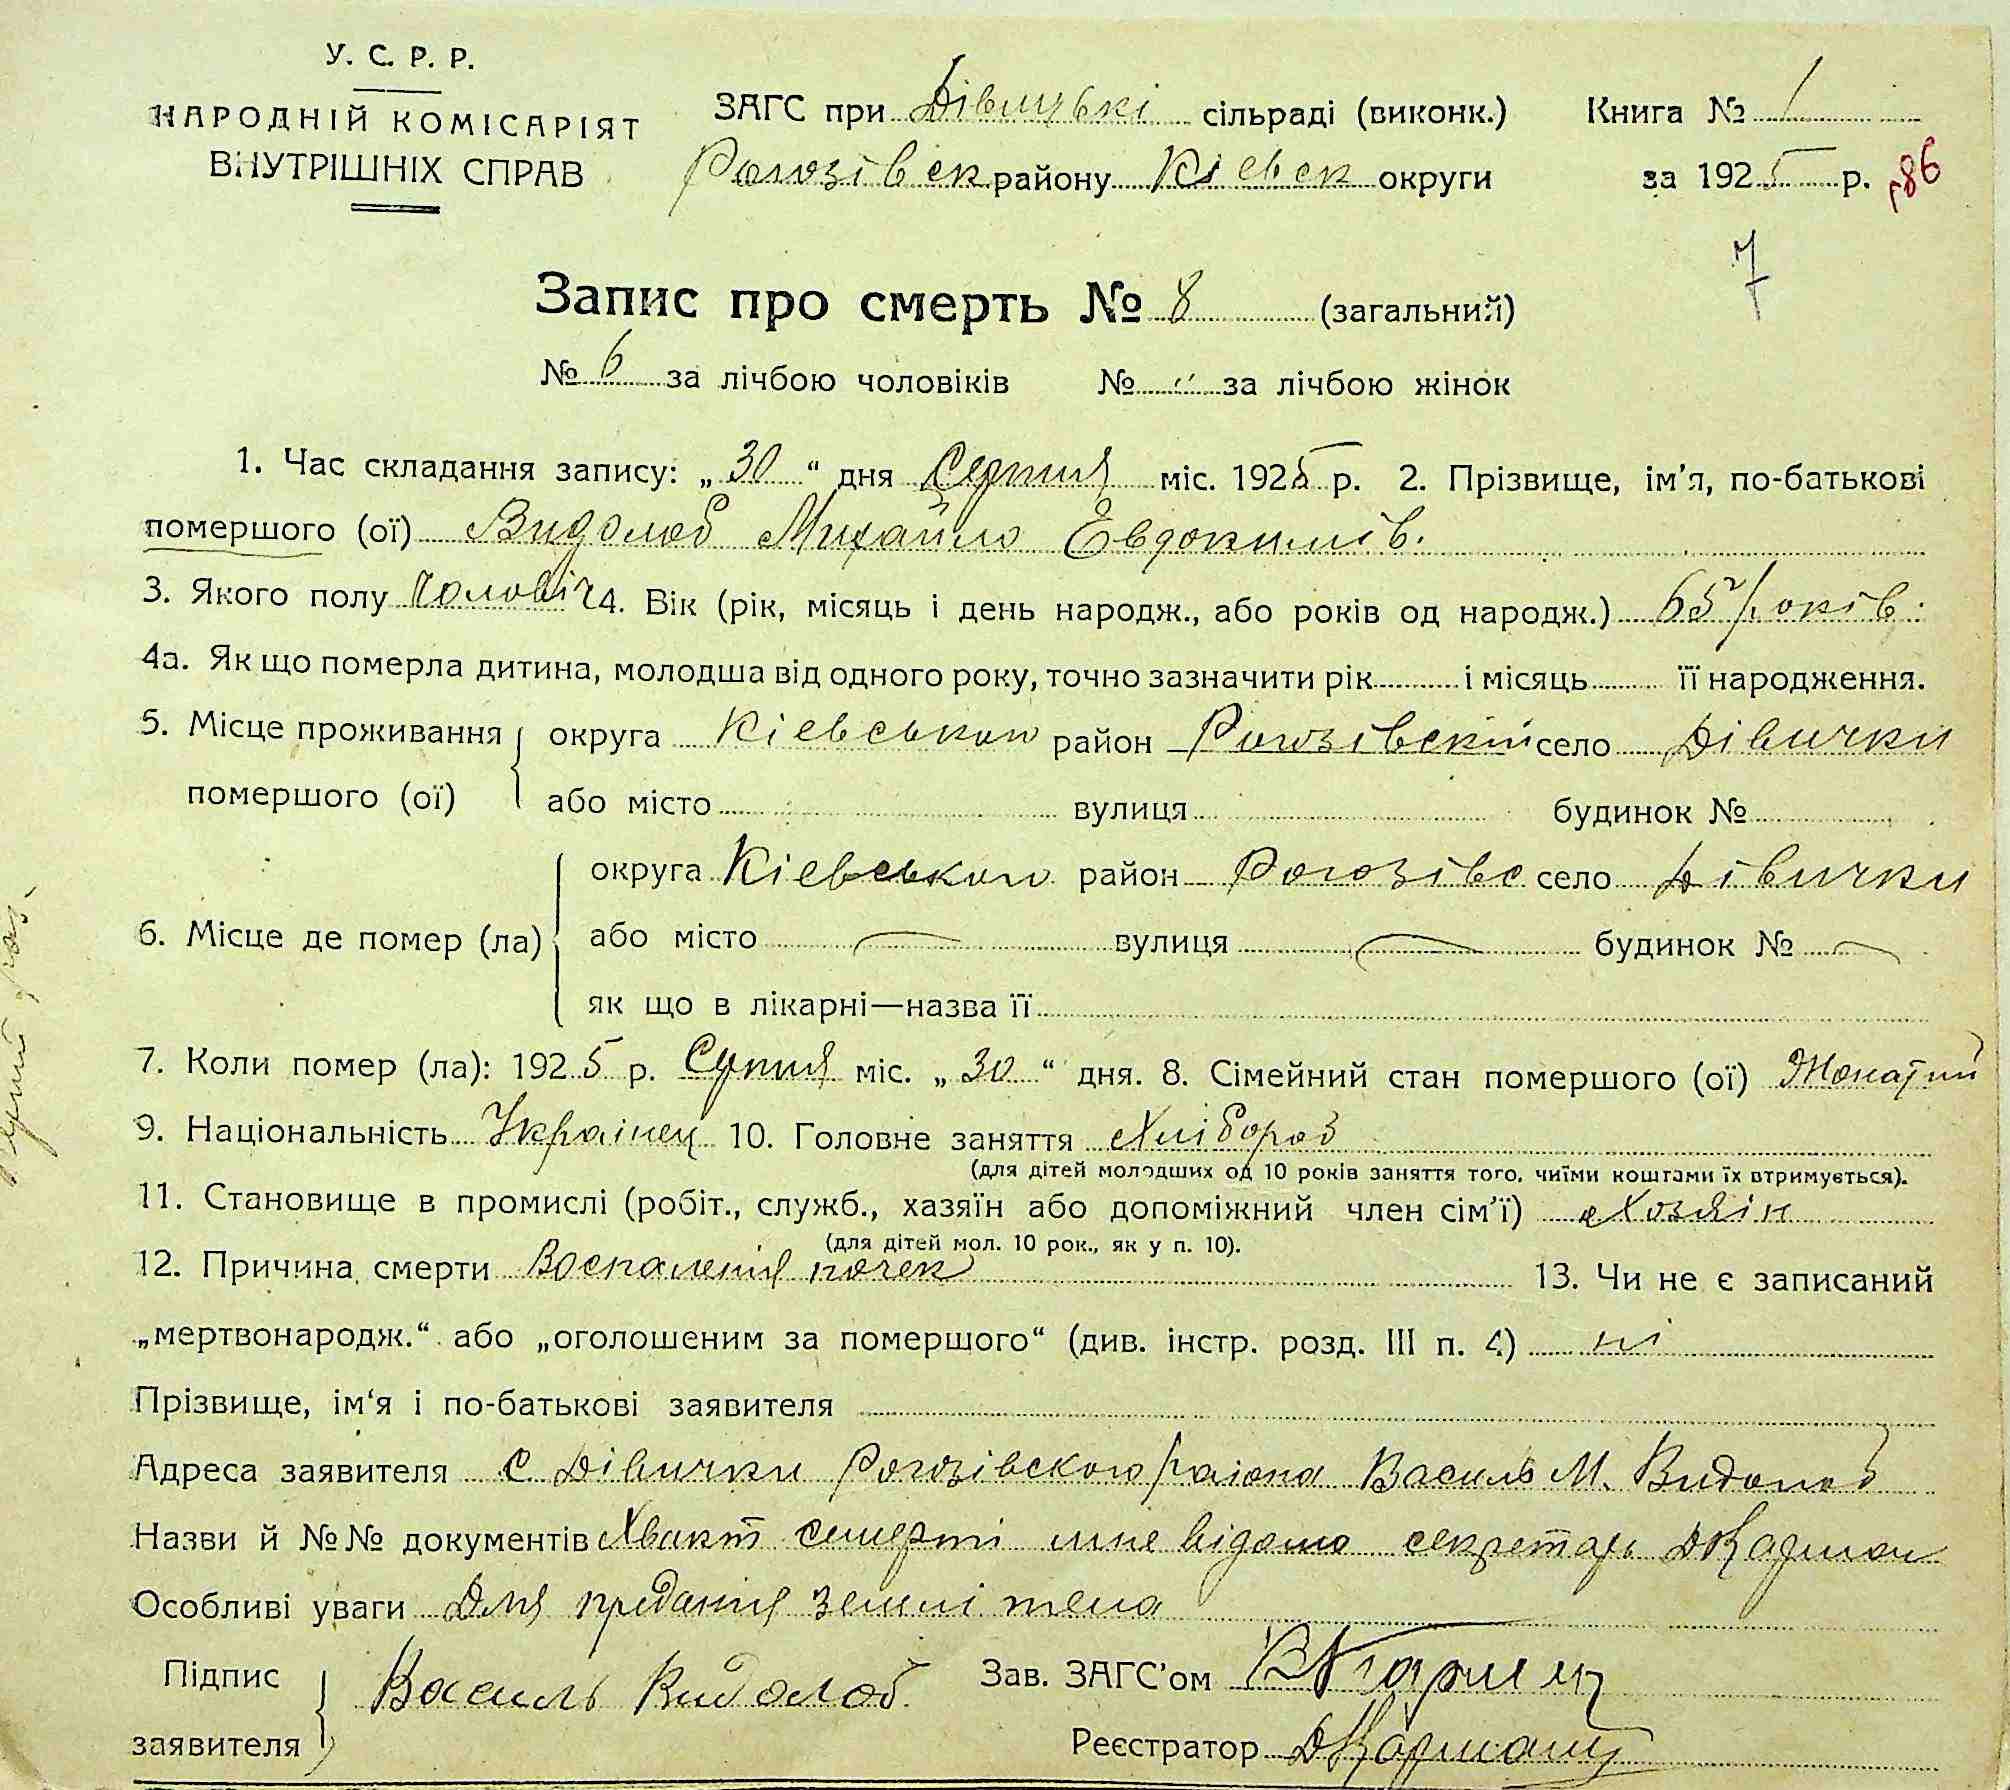 У. С. Р. Р.
НАРОДНІЙ КОМІСАРІЯТ
ВНУТРІШНІХ СПРАВ
ЗАГС при Дівицькі сільраді (виконк.) Книга № 1
Рогозівск району Кіевск округи за 1925 р. 86
7
Запис про смерть № 8 (загальний)
№ 6 за лічбою чоловіків № " за лічбою жінок
1. Час складання запису: „30“ дня Серпня міс. 1925 р. 2. Прізвище, ім'я, по-батькові
помершого (ої) Видолоб Михайло Евдокимів.
3. Якого полу Чоловіч 4. Вік (рік, місяць і день народж., або років од народж.) 65 років
4а. Як що померла дитина, молодша від одного року, точно зазначити рік і місяць її народження.
5. Місце проживання округа Кіевськои район Рогозівский село Дівички
помершого (ої) або місто вулиця будинок №
округа Кіевськои район Рогозівс село Дівички
6. Місце де помер (ла) або місто — вулиця — будинок № —
як що в лікарні—назва її
7. Коли помер (ла): 1925 р. Серпня міс. „30“ дня. 8. Сімейний стан помершого (ої) Жонатий
9. Національність Українец 10. Головне заняття Хлібороб
(для дітей молодших од 10 років заняття того, чиїми коштами їх втримується).
11. Становище в промислі (робіт., служб., хазяїн або допоміжний член сім'ї) Хозяін
(для дітей мол. 10 рок., як у п. 10).
12. Причина смерти Воспаления почек 13. Чи не є записаний
„мертвонародж.“ або „оголошеним за помершого“ (див. інстр. розд. III п. 4) ні
Прізвище, ім'я і по-батькові заявителя
Адреса заявителя с Дівички Рогозівского раіона Василь М. Видолоб
Назви й №№ документів Хвакт смерті мне відомо секретарь
Особливі уваги Для предания землі тела
Підпис заявителя Василь Видолоб Зав. ЗАГС'ом
Реєстратор